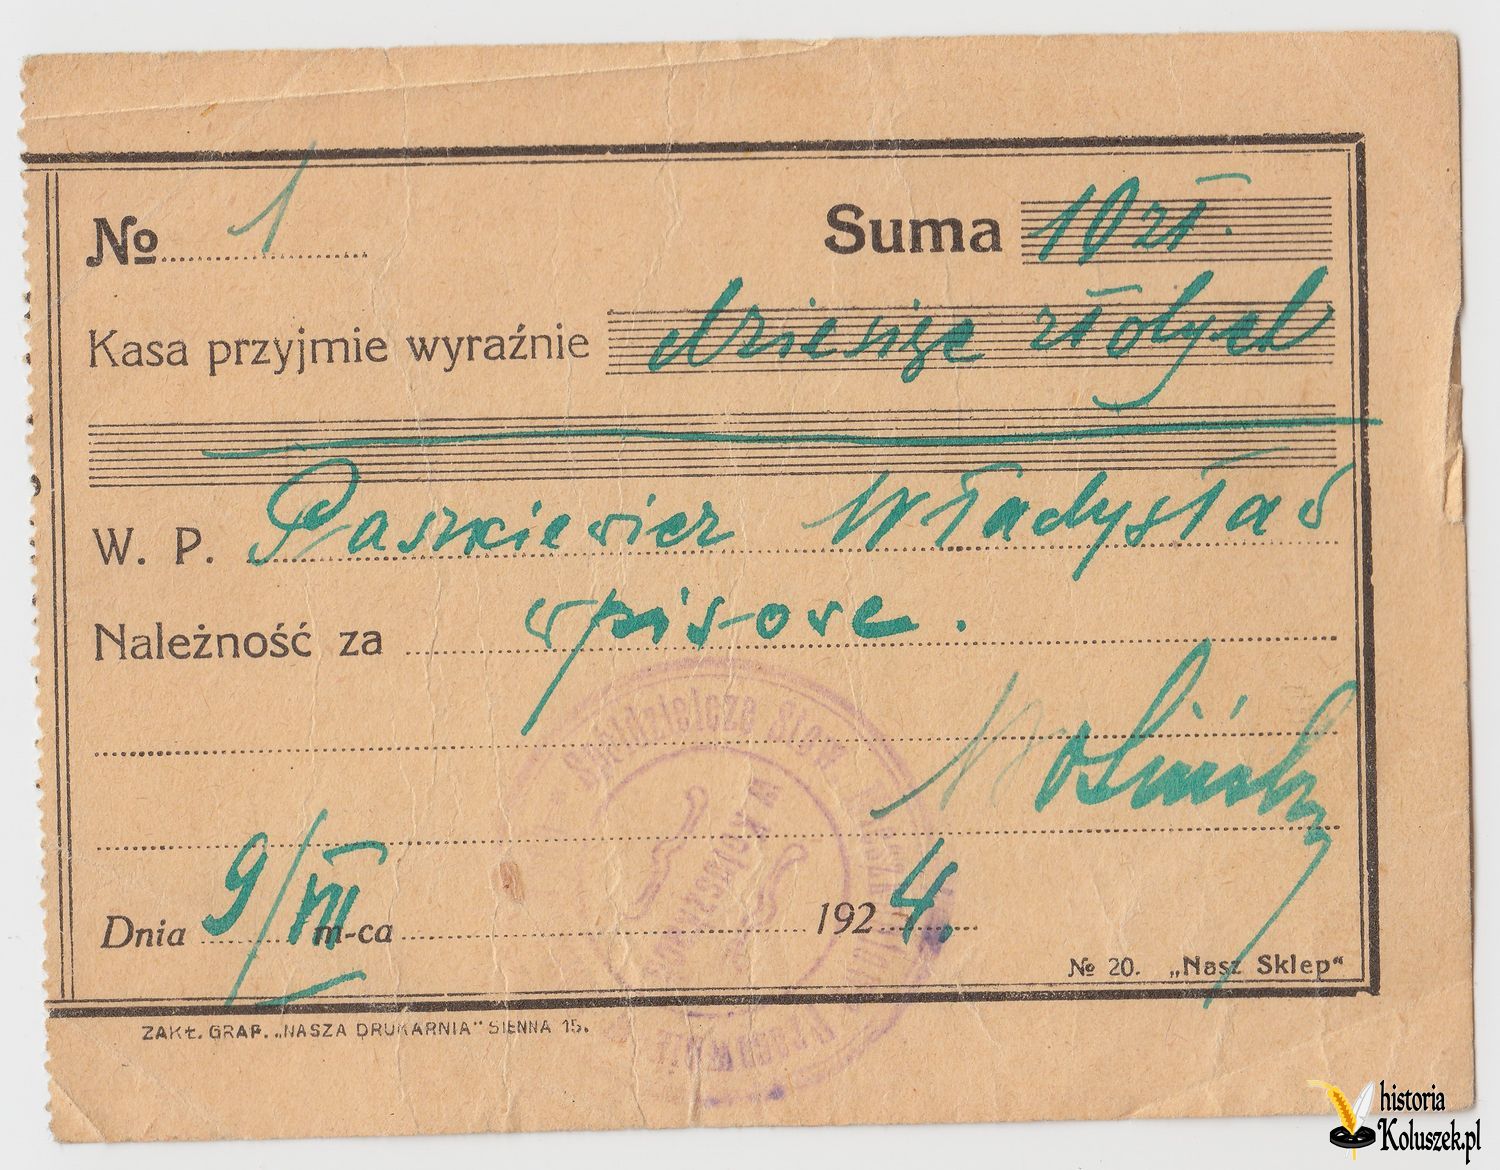 № 1 Suma 10 zł.
Kasa przyjmie wyraźnie dziesięć złotych
W. P. Paszkiewicz Władysław
Należność za wpisowe.
Dnia 9/VII m-ca 1924.
№ 20. „Nasz Sklep“
ZAKŁ. GRAF. „NASZA DRUKARNIA“ SIENNA 15.
Spółdzielcze Stow.
w Koluszkach
historia
Koluszek.pl